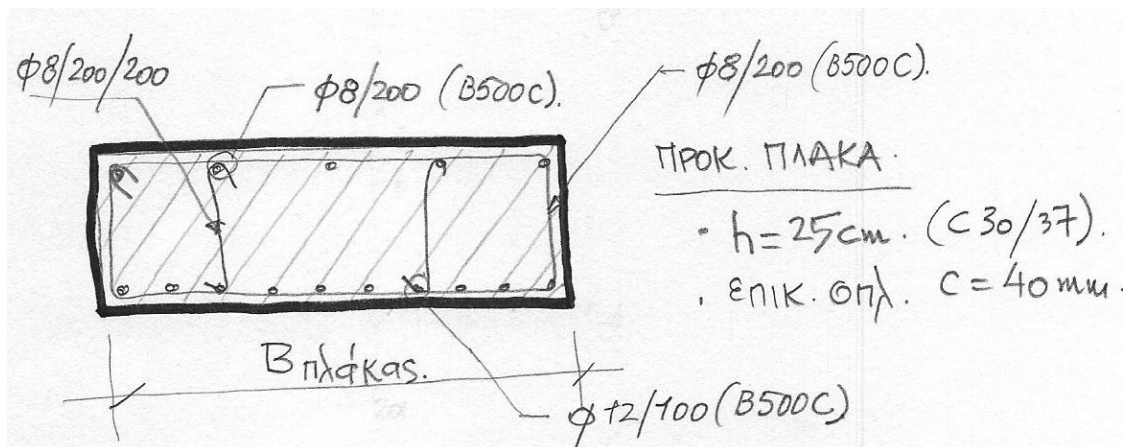 φ8/200/200
φ8/200 (B500C).
φ8/200 (B500C).
ΠΡΟΚ. ΠΛΑΚΑ.
· h=25cm. (C30/37).
· ΕΠΙΚ. ΟΠΛ. C=40mm.
Β πλάκας.
φ12/100 (B500C)